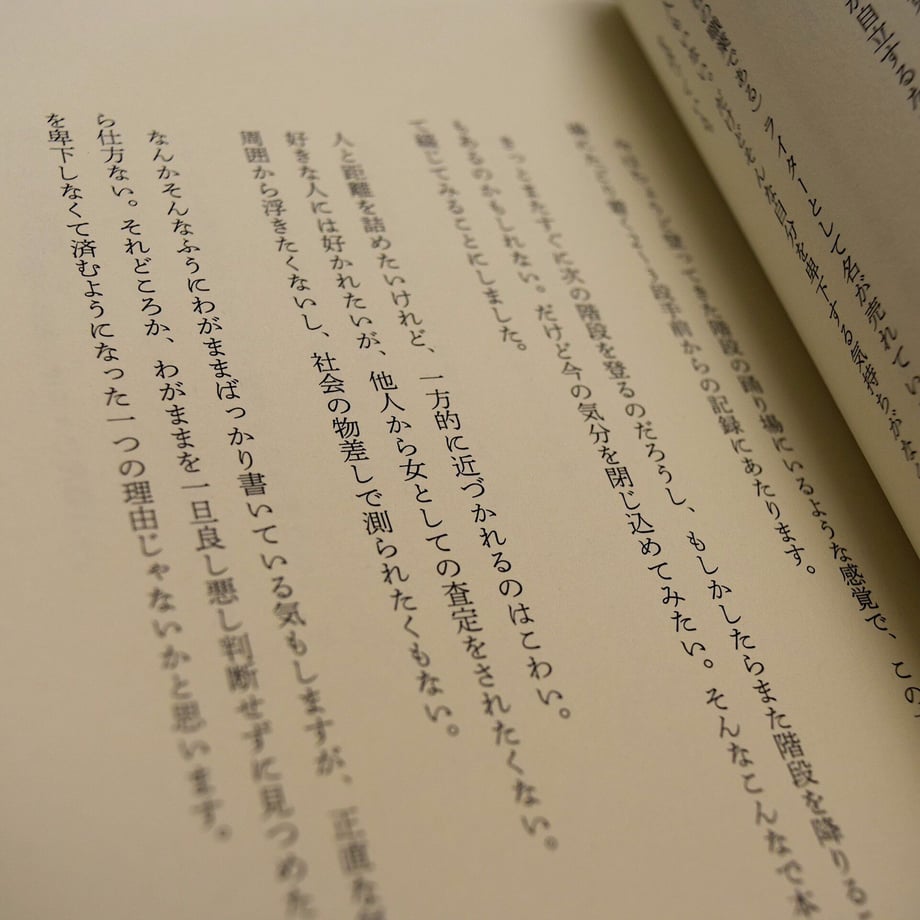 が自立するた
ライターとして名が売れてい
そんな自分を卑下する気持ちがな
今はちょうど登ってきた階段の踊り場にいるような感覚で、この
2〜3段手前からの記録にあたります。
きっとまたすぐに次の階段を登るのだろうし、もしかしたらまた階段を降りるこ
もあるのかもしれない。だけど今の気分を閉じ込めてみたい。そんなこんなで本
て綴じてみることにしました。
人と距離を詰めたいけれど、一方的に近づかれるのはこわい。
好きな人には好かれたいが、他人から女としての査定をされたくない。
周囲から浮きたくないし、社会の物差しで測られたくもない。
なんかそんなふうにわがままばっかり書いている気もしますが、正直な
ら仕方ない。それどころか、わがままを一旦良し悪し判断せずに見つめた
を卑下しなくて済むようになった一つの理由じゃないかと思います。